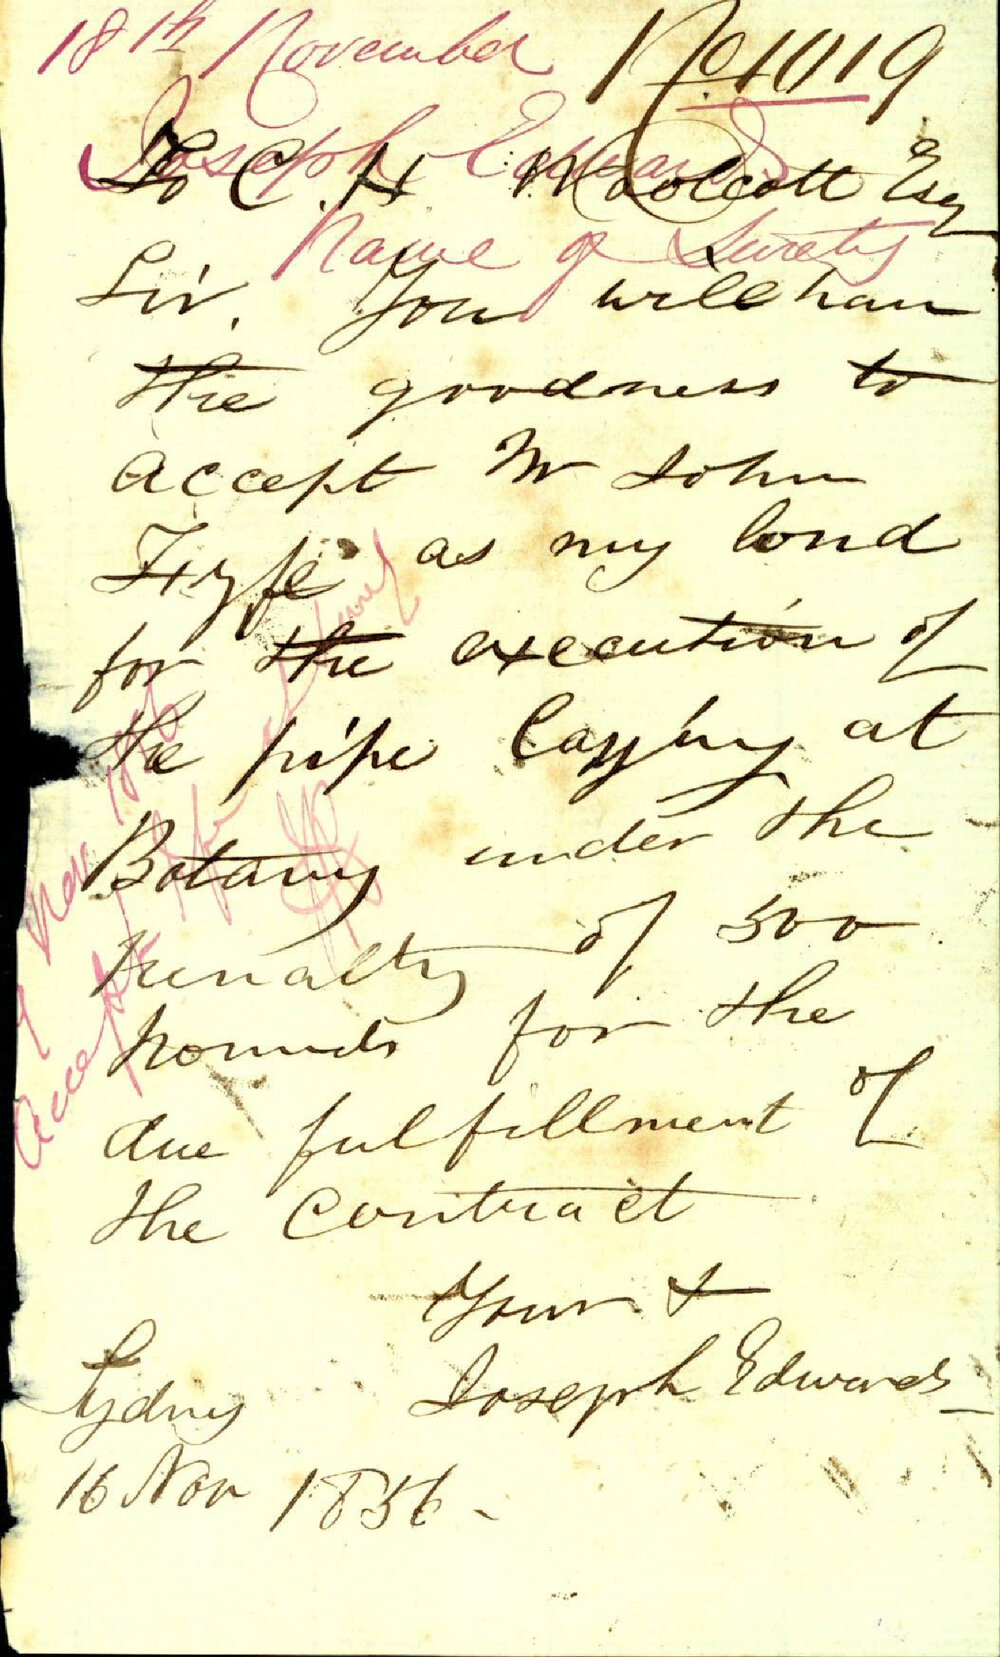 18th November
No. 1019
Joseph Edwards
To C. H. Woolcott Esq
Name of Surety
Sir. You will have
the goodness to
accept Mr John
Fyfe as my bond
for the execution of
the pipe laying at
Botany under the
penalty of 500
pounds for the
due fulfillment of
the contract
Your &
Joseph Edwards
Sydney
16 Nov 1856
Nov
Accept